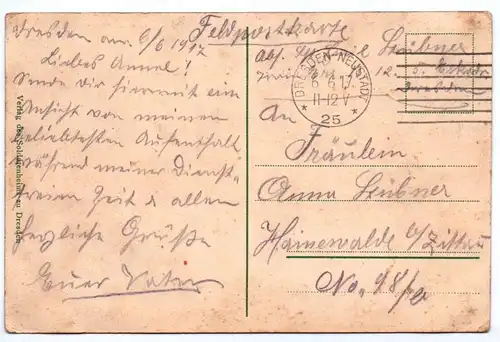 Dresden am 6/6 1917
Feldpostkarte
Liebes Annel!
Sende dir hiermit ein
Ansicht von meinen
beliebtesten Aufenthalt
während meiner Dienst-
freien Zeit & allen
herzliche Grüße
Euer Vater
Verlag des Soldatenheims zu Dresden
Abs. Leubner
12. 5. Eskadr.
Dresden
DRESDEN-NEUSTADT
6 6 17
11-12 V
* 25 *
An
Fräulein
Anna Leubner
Hainewalde b/Zittau
No. 98